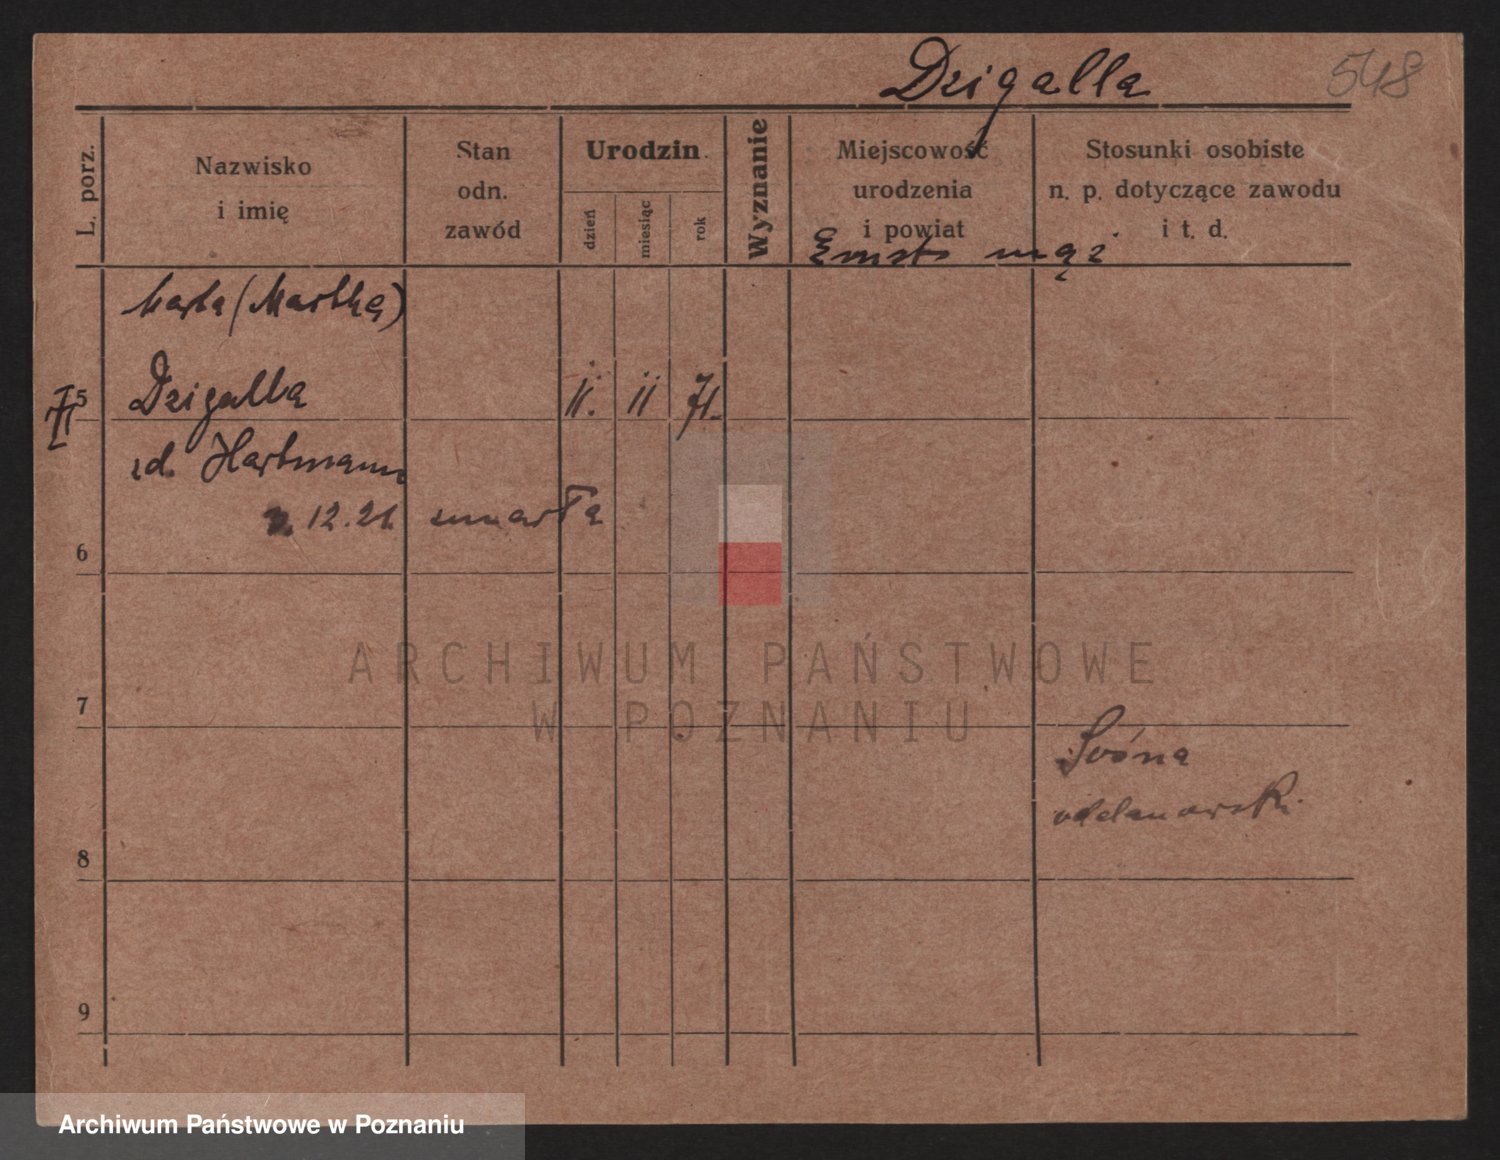 Dzigalla 548
L. porz.
Nazwisko
i imię
Stan
odn.
zawód
Urodzin
dzień
miesiąc
rok
Wyznanie
Miejscowość
urodzenia
i powiat
Stosunki osobiste
n. p. dotyczące zawodu
i t. d.
Ernst mąż
Marta (Martha)
5 Dzigalla 11. 11 71.
zd. Hartmann
12.21. umarła
6
7
8
9
ARCHIWUM PAŃSTWOWE
W POZNANIU
Archiwum Państwowe w Poznaniu